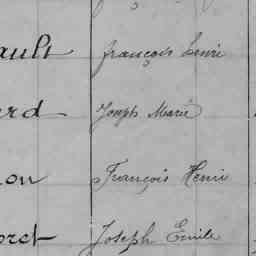 ault françois henri
rd Joseph Marie
on François Henri
oret Joseph Emile